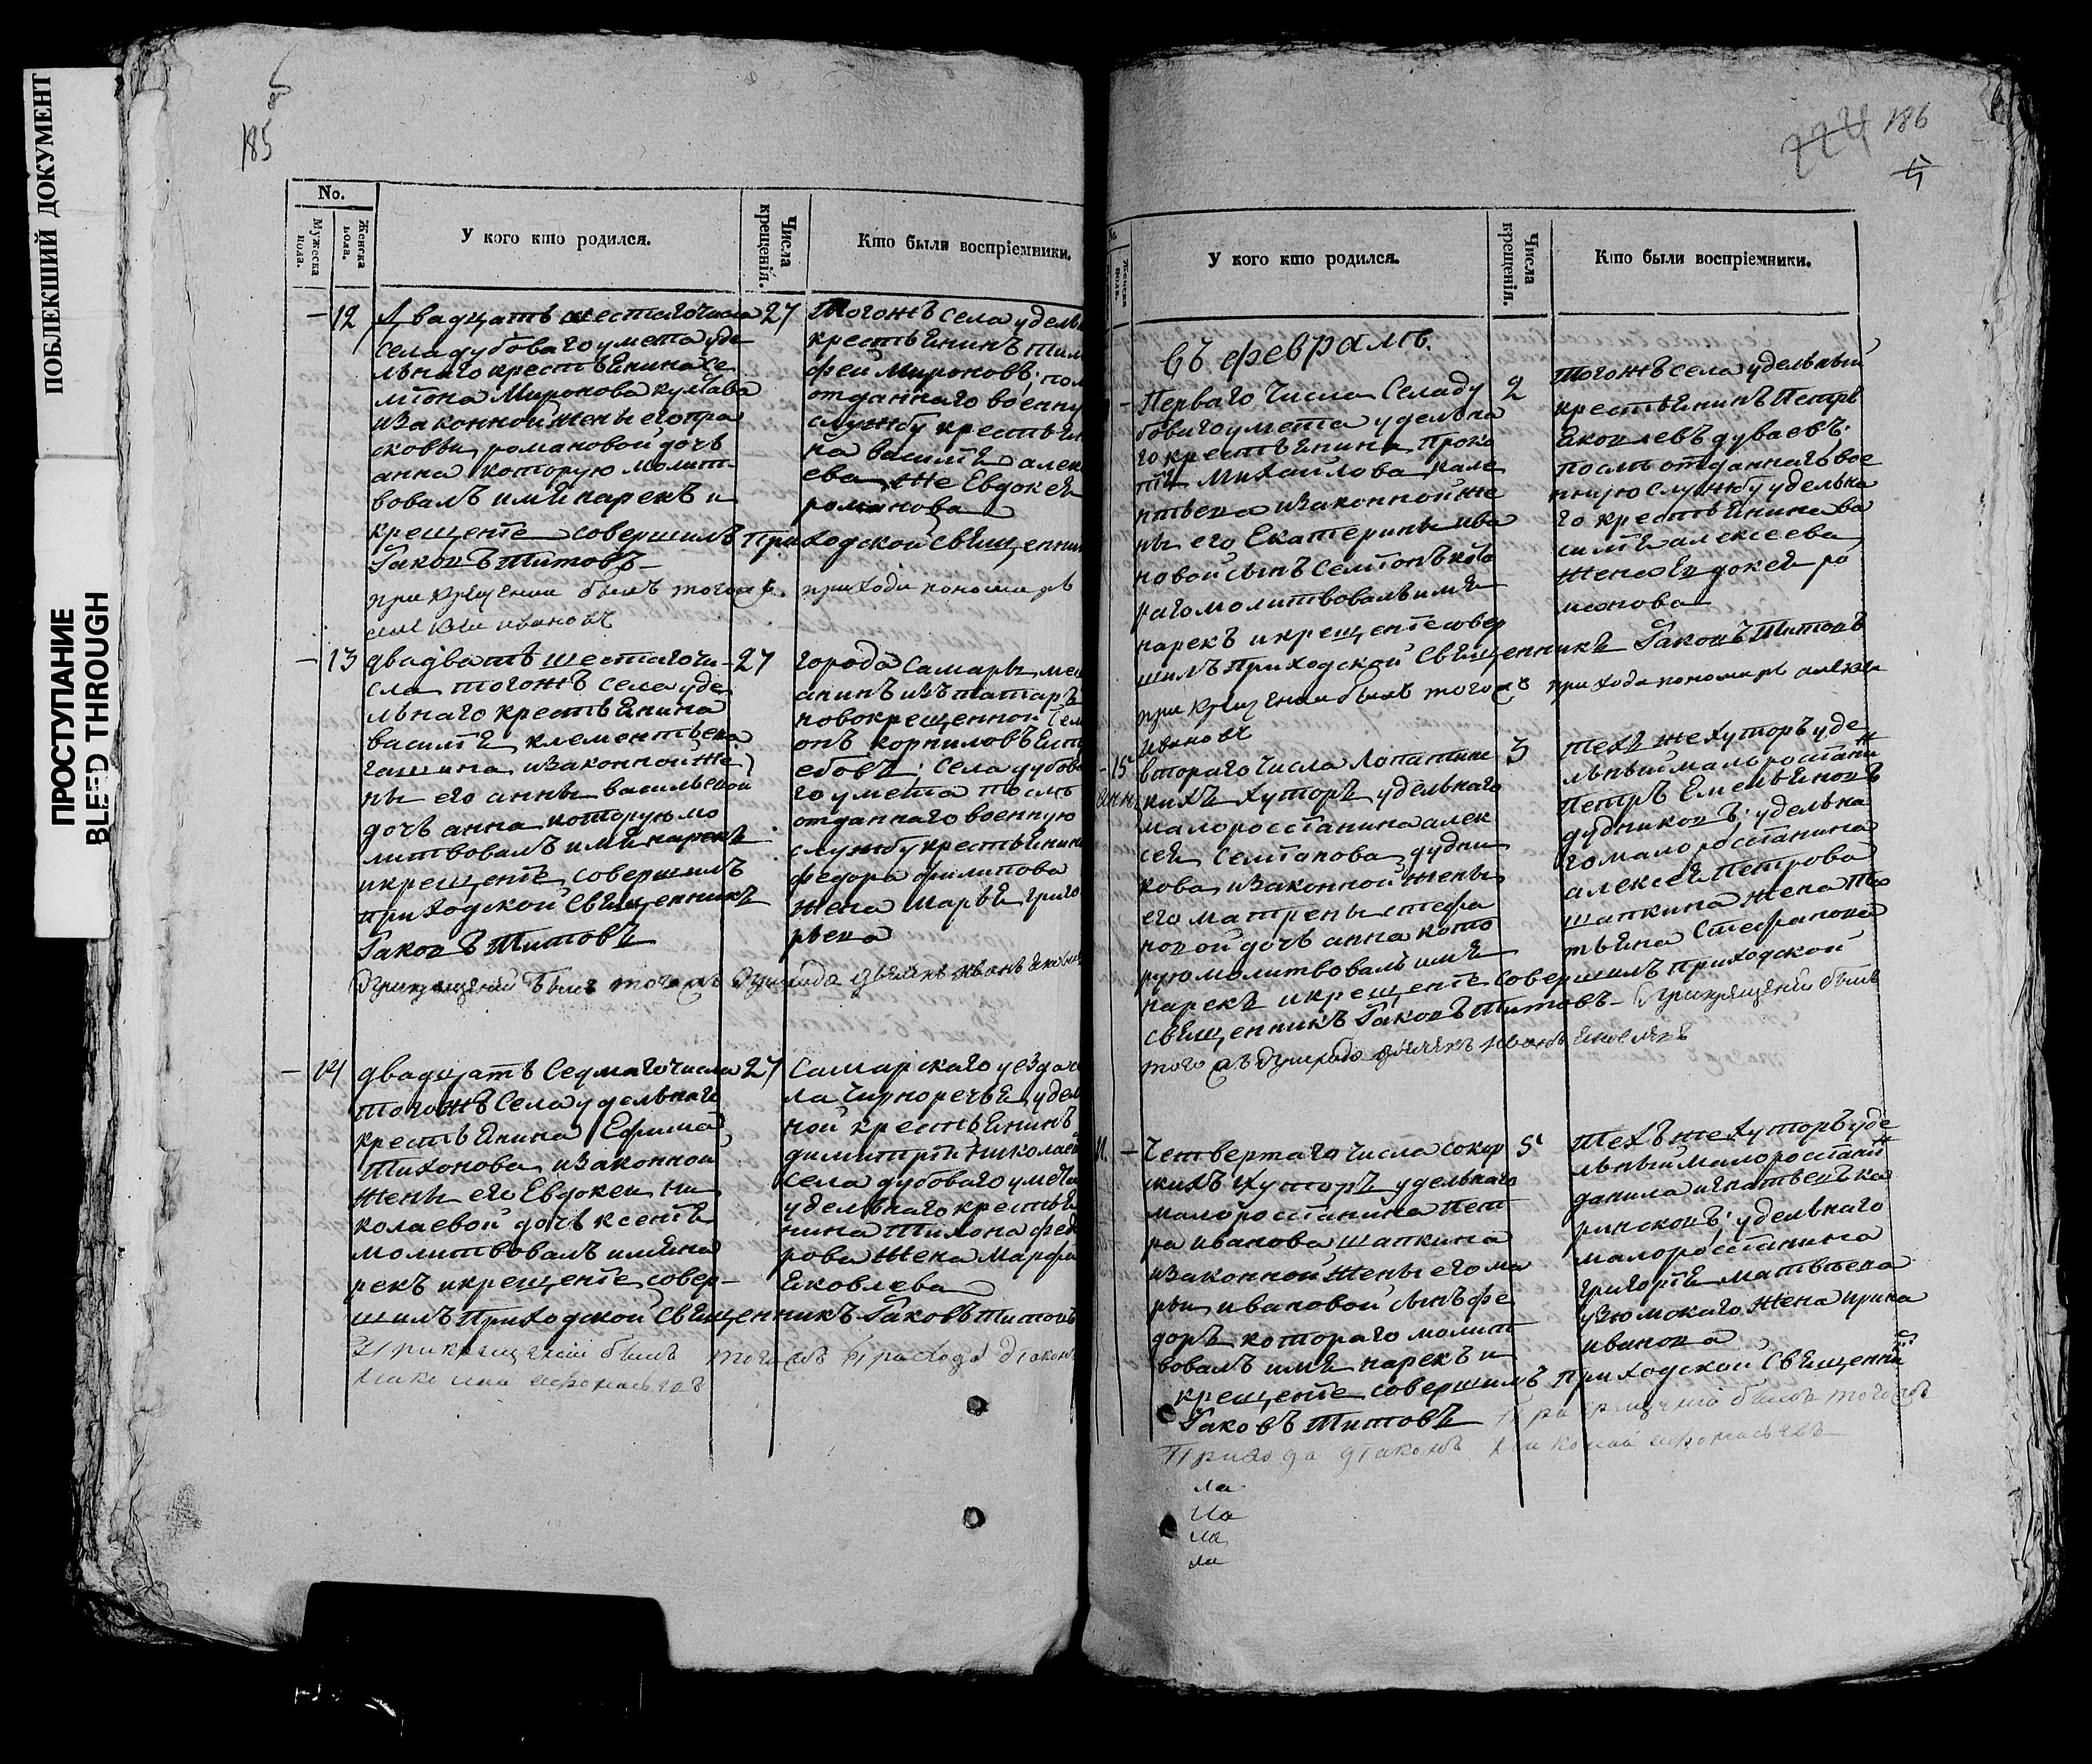 ПОБЛЕКШИЙ ДОКУМЕНТ
ПРОСТУПАНИЕ
BLEED THROUGH
185
No.
Мужеска пола.
Женска пола.
У кого кто родился.
Числа крещенія.
Кто были воспріемники.
— 12 Двадцать шестаго числа 27
села дубоваго умета уде
льнаго крестьянина се
миона Миронова
изаконной жены его пра
сковьи романовой дочь
анна которую молит
вовалъ имя нарекъ и
крещение совершилъ приходской священник
Іаковъ Титовъ
при крещении былъ тогожъ прихода пономарь
алексей ивановъ
Тогожъ села удель
крестьянинъ тим
фей Мироновъ; пос
отданнаго военну
службу крестьян
на василья алек
ева же Евдокея
романова
— 13 двадцать шестаго чи- 27
сла тогожъ села уде
льнаго крестьянина
василья клементьева
гашина изаконной же
ны его анны васильевой
дочь анна которую мо
литвовалъ имя нарекъ
и крещение совершилъ
приходской священникъ
Іаковъ Титовъ
при крещении былъ тогожъ прихода дьячекъ иванъ яковл
города Самары ме
анинъ изъ татаръ
новокрещенной сем
онъ корниловъ
села дубова
го умета после
отданнаго военную
службу крестьянин
федора филипова
жена марья григо
рьева
— 14 двадцать седмаго числа 27
тогожъ села удельнаго
крестьянина Ефима
Тихонова изаконной
жены его Евдокеи ни
колаевой дочь ксенья
молитвовалъ имя на
рекъ и крещение совер-
шилъ приходской священникъ Іаковъ Титовъ
При крещении былъ тогожъ прихода диаконъ
николай афонасьевъ
Самарскаго уезда се
ла Чорноречья удел
ной крестьянинъ
димитрий николаев
села дубоваго умета
удельнаго крестья
нина Тихона федо
рова жена марфа
Яковлева
224 186
У кого кто родился.
Числа крещенія.
Кто были воспріемники.
въ феврале.
— Перваго числа Села ду 2
боваго умета удельна
го крестьянина проко
пья Михаилова кале
нтьева изаконной же
ны его Екатерины ива
новой сынъ Семионъ кото
раго молитвовалъ имя
нарекъ и крещение совер
шилъ приходской священникъ Іаковъ Титовъ
при крещении былъ тогожъ прихода пономарь алексей
ивановъ
Тогожъ села удельный
крестьянинъ Петръ
Яковлевъ дуваевъ:
после отданнаго вое
нную службу удельна
го крестьянина ва
силья алексеева
жена Евдокея ро
манова
— 15 втораго числа Лопатин 3
анн скихъ хуторъ удельнаго
малоросстанина алек
сея Семианова дудни
кова изаконной жены
его матрены стефа
новой дочь анна кото
рую молитвовалъ имя
нарекъ и крещение совершилъ приходской
священникъ Іаковъ Титовъ — при крещении былъ
тогожъ прихода дьячекъ иванъ яковлевъ
техъ же хуторъ уде
льный малоросстанин
Петръ Емельяновъ
дудниковъ; удельна
го малоросстанина
алексея Петрова
шапкина жена та
тьяна Стефанова
11. — Четвертаго числа сокор 5
скихъ хуторъ удельнаго
малоросстанина пет
ра иванова шапкина
изаконной жены его ма
рьи ивановой сынъ фе
доръ котораго молит
вовалъ имя нарекъ и
крещение совершилъ приходской священник
Іаковъ Титовъ При крещении былъ тогожъ
прихода диаконъ николай афонасьевъ
техъ же хуторъ уде
льный малоросстанин
данила игнатьевъ ка
ринсковъ; удельнаго
малоросстанина
григорья матвеева
узюмскаго жена ирина
иванова
ла
ла
ла